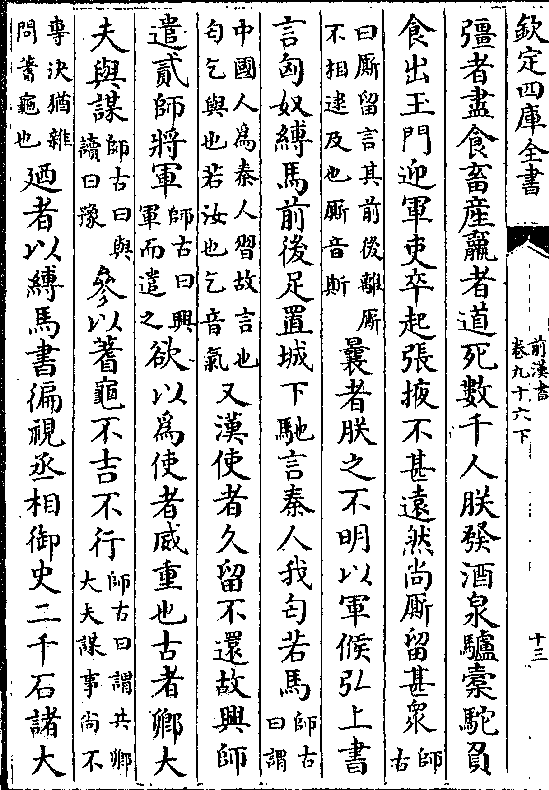 欽定四庫全書
前漢書
卷九十六下
十三
彊者盡食畜産羸者道死數千人朕發酒泉驢橐駝負
食出玉門迎軍吏卒起張掖不甚遠然尚厮留甚衆師古
曰厮留言其前後離厮
不相逮及也厮音斯
曩者朕之不明以軍候弘上書
言匈奴縛馬前後足置城下馳言秦人我匄若馬師古曰謂
中國人為秦人習故言也
匄乞與也若汝也乞音氣
又漢使者久留不還故興師
遣貳師將軍師古曰興
軍而遣之
欲以爲使者威重也古者卿大
夫與謀師古曰與
讀曰豫
參以蓍龜不吉不行師古曰謂共卿
大夫謀事尚不
專決猶雜
問蓍龜也
廼者以縛馬書徧視丞相御史二千石諸大